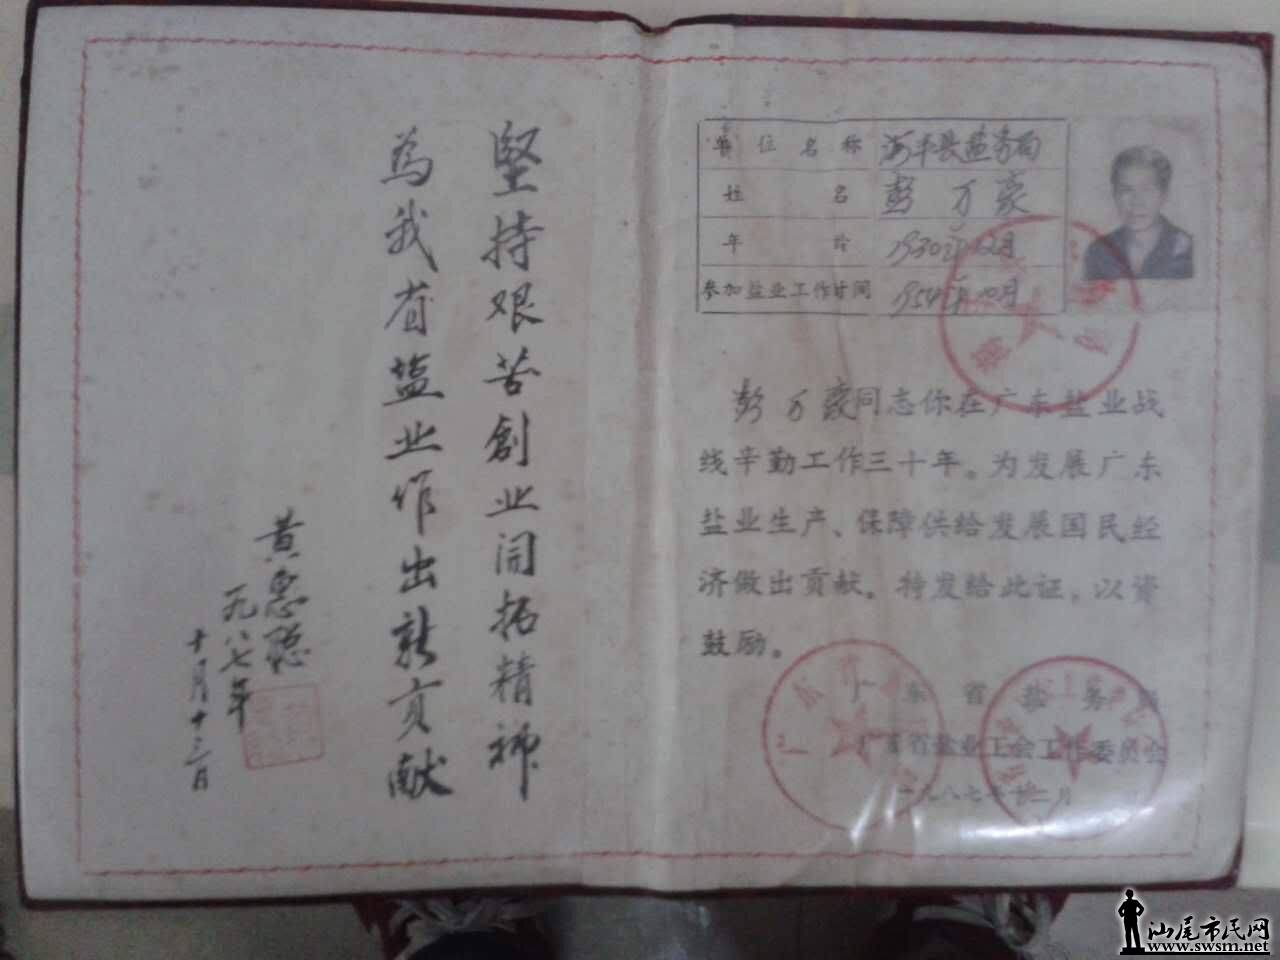 堅持艰苦創业開拓精神
為我省盐业作出新贡献
黄恩聪
一九八七年
十月十三日
单位名称 海丰县盐务局
姓名 彭万豪
年令 1930年12月
参加盐业工作时间 1954年10月
彭万豪同志你在广东盐业战
线辛勤工作三十年。为发展广东
盐业生产、保障供给发展国民经
济做出贡献。特发给此证，以资
鼓励。
广东省盐务局
广东省盐业工会工作委员会
一九八七年十二月
汕尾市民网
www.swsm.net